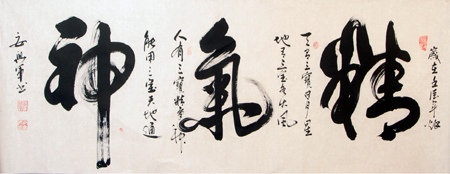 歲在壬辰年
精
天有三寶日月星
地有三寶水火風
氣
人有三寶精氣神
能用三寶天地通
神